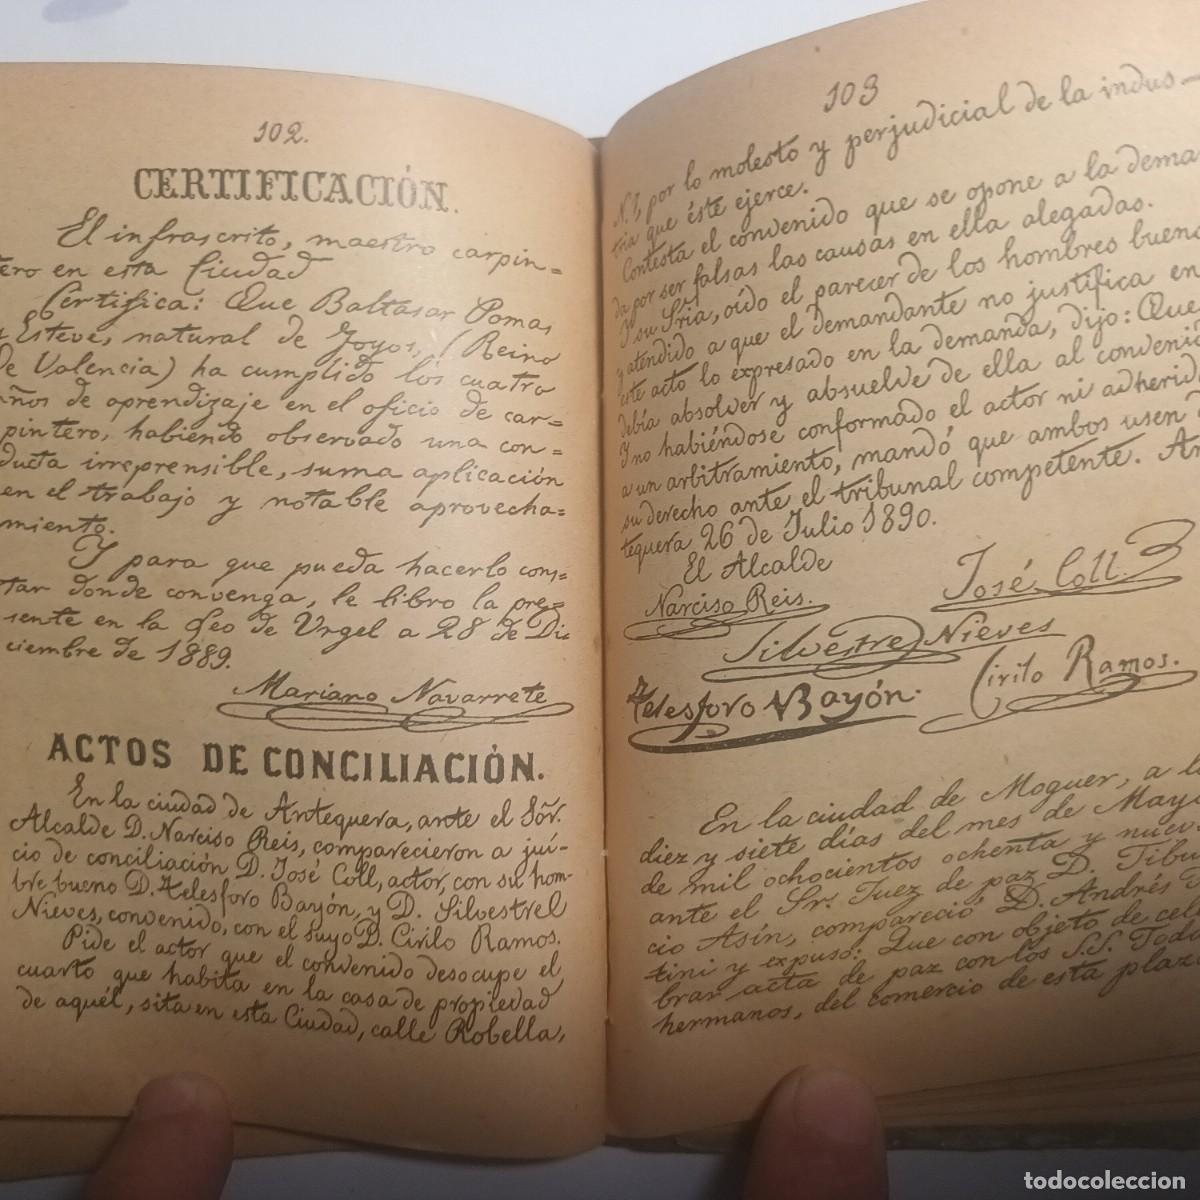 102.
CERTIFICACIÓN.
El infrascrito, maestro carpin=
tero en esta Ciudad
Certifica: Que Baltasar Pomas
y Esteve, natural de Joyos, (Reino
de Valencia) ha cumplido los cuatro
años de aprendizaje en el oficio de car=
pintero, habiendo observado una con=
ducta irreprensible, suma aplicación
en el trabajo y notable aprovecha=
miento.
Y para que pueda hacerlo cons=
tar donde convenga, le libro la pre=
sente en la Seo de Urgel a 28 de Di=
ciembre de 1889.
Mariano Navarrete
ACTOS DE CONCILIACIÓN.
En la ciudad de Antequera, ante el Sõr.
Alcalde D. Narciso Reis, comparecieron a jui-
cio de conciliación D. José Coll, actor, con su hom-
bre bueno D. Telesforo Bayón, y D. Silvestre
Nieves, convenido, con el suyo D. Cirilo Ramos.
Pide el actor que el convenido desocupe el
cuarto que habita en la casa de propiedad
de aquél, sita en esta Ciudad, calle Robella,
103
N.º 1, por lo molesto y perjudicial de la indus-
tria que éste ejerce.
Contesta el convenido que se opone a la deman
da por ser falsas las causas en ella alegadas.
Y su Sria, oído el parecer de los hombres buenos
y atendido a que el demandante no justifica en
este acto lo expresado en la demanda, dijo: Que
debía absolver y absuelve de ella al conveni
Y no habiéndose conformado el actor ni adherido
a un arbitramiento, mandó que ambos usen
su derecho ante el tribunal competente. An
tequera 26 de Julio 1890.
El Alcalde
Narciso Reis.
José Coll
Silvestre Nieves
Telesforo Bayón.
Cirilo Ramos.
En la ciudad de Moguer, a
diez y siete días del mes de Mayo
de mil ochocientos ochenta y nueve
ante el Sr. Juez de paz D. Tibu
cio Asín, compareció D. Andrés
tini y expuso: Que con objeto de cele
brar acta de paz con los S.S. Toda
hermanos, del comercio de esta plaza
todocoleccion